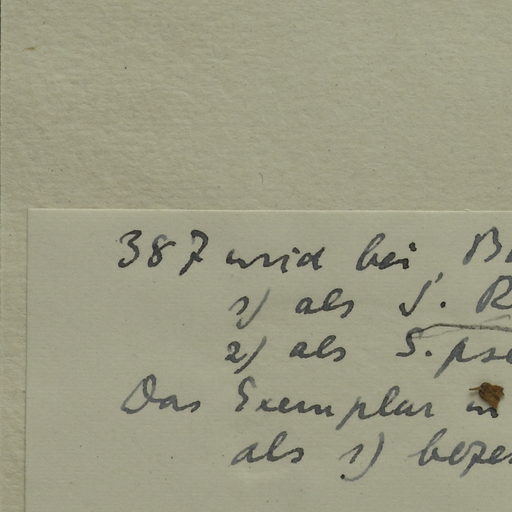 387 wird bei B
1) als S. R
2) als S. pse
Das Exemplar in
als 1) bezei